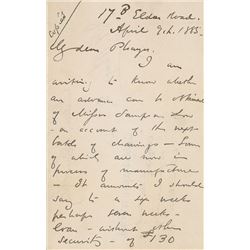 Copied
17B Eldon Road.
April 9th. 1885.
My dear Phayre.
I am
writing to know whether
an advance can be obtained
of Messrs Sampson Low
- on account of the next
batch of drawings - Some
of which are now in
process of manufacture
- It amounts I should
say to a six weeks
perhaps seven weeks
loan - without further
security - of £130